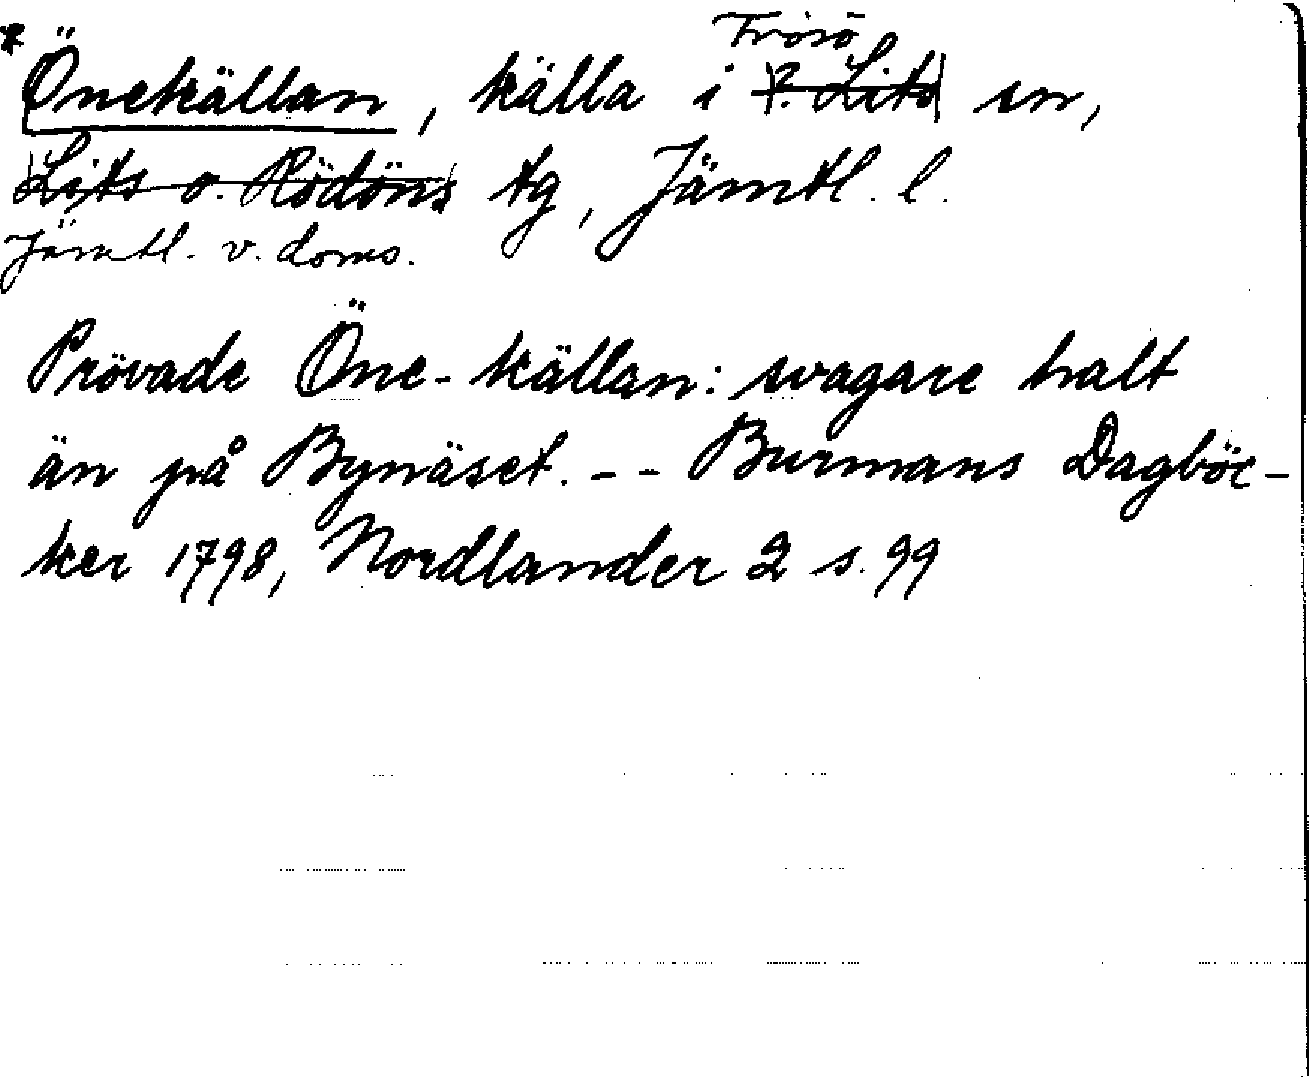 Frösö
* Önekällan, källa i ?. Lits sn,
Lits o. Rödöns tg, Jämtl. l.
Jämtl. v. doms.
Prövade Öne-källan: svagare halt
än på Bynäset. -- Burmans Dagböc-
ker 1798, Nordlander 2 s. 99